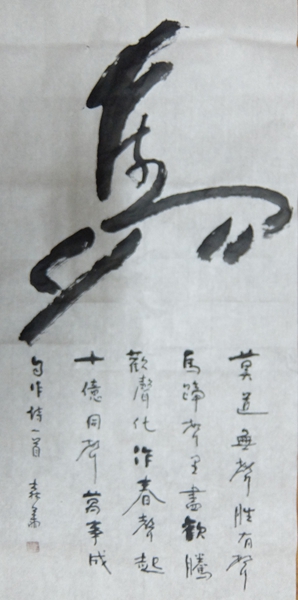 馬
莫道無聲勝有聲
馬蹄聲里盡歡騰
歡聲化作春聲起
十億同聲萬事成
自作詩一首